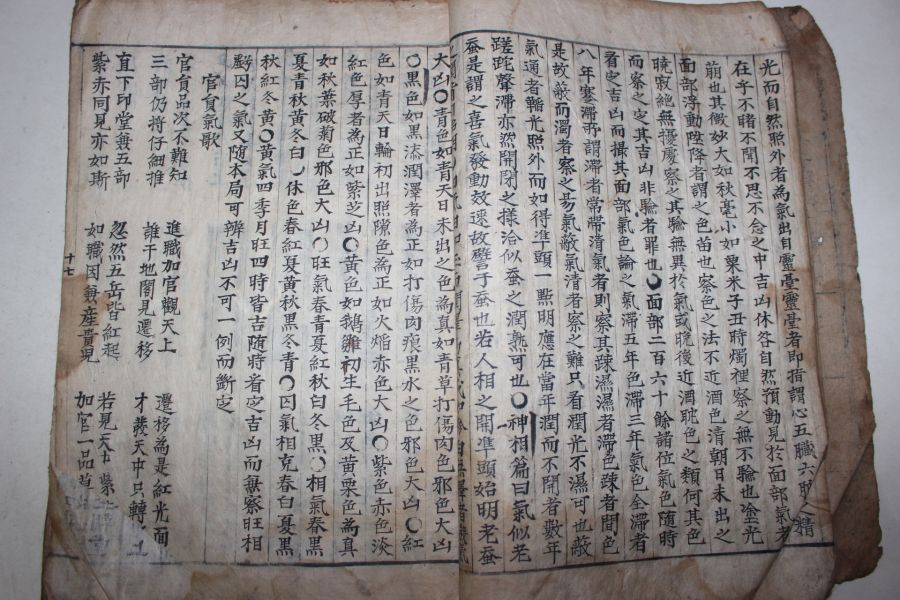 光而自然照外者為氣出自靈臺靈臺者即指謂心五臟六腑之精
在乎不睹不聞不思不念之中吉凶休咎自然預動見於面部氣者
萠也其微妙大如秋毫小如粟米子丑時燭裡察之無不驗也塗光
面部浮動陞降者謂之色苗也察色之法不近酒色清朝日未出之
曉寂絶無擾慶察之其驗無異於氣或晩後近酒耽色之類何其色
而察之定其吉凶非驗者罪也〇面部二百六十餘諸位氣色隨時
看定吉凶而撮其面部氣色論之氣滯五年色滯三年氣色全滯者
八年蹇滯時謂滯者常帶清氣者則察其疎濕濕者滯色疎者間色
是故蔽而濁者察之易氣蔽氣清者察之難只看潤光不濕可也蔽
氣通者輪光照外而如得準頭一點明應在當年潤而不開者數年
蹉跎聲滯亦然開閉之樣洽似蚕之潤熟可也〇神相篇曰氣似老
蚕是謂之喜氣發動效速故譬于蚕也若人相之開準頭始明老蚕
大凶〇青色如青天日未出之色為真如青草打傷肉色邪色大凶
〇黑色如黑漆潤澤者為正如打傷肉痕黑水之色邪色大凶〇紅
色如青天日輪初出照隙色為正如火焰赤色大凶〇紫色赤色淡
紅色厚者為正如紫芝凶〇黄色如鵝雛初生毛色及黄栗色為真
如秋葉破菊色邪色大凶〇旺氣春青夏紅秋白冬黑〇相氣春黑
夏青秋黄冬白〇休色春紅夏黄秋黑冬青〇囚氣相克春白夏黑
秋紅冬黄〇黄氣四季月旺四時皆吉隨時看定吉凶而無察旺相
囚之氣又隨本局可辨吉凶不可一例而斷定
官貟氣歌
官貟品次不難知 進職加官觀天上 遷移為是紅光面
三部仍將仔細推 誰干地閣見遷移 才發天中只轉
直下印堂兼五部 忽然五岳皆紅起 若見天中紫
紫赤同見亦如斯 如職因兼産貴児 加官一品
十七